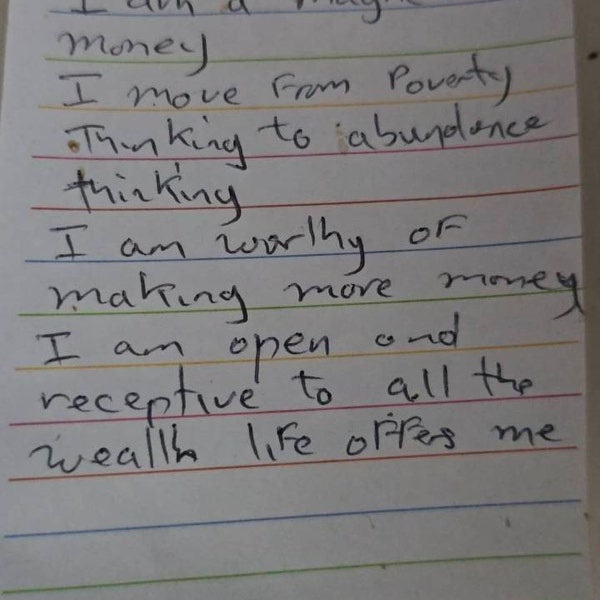 I am a magne
money
I move From Poverty
Thinking to abundance
thinking
I am worthy of
making more money
I am open and
receptive to all the
wealth life offers me